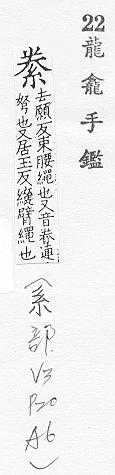 22 龍龕手鑑
絭 去願反束腰繩也又音眷連
弩也又居玉反纕臂繩也
(系部 V3 P20 A6)